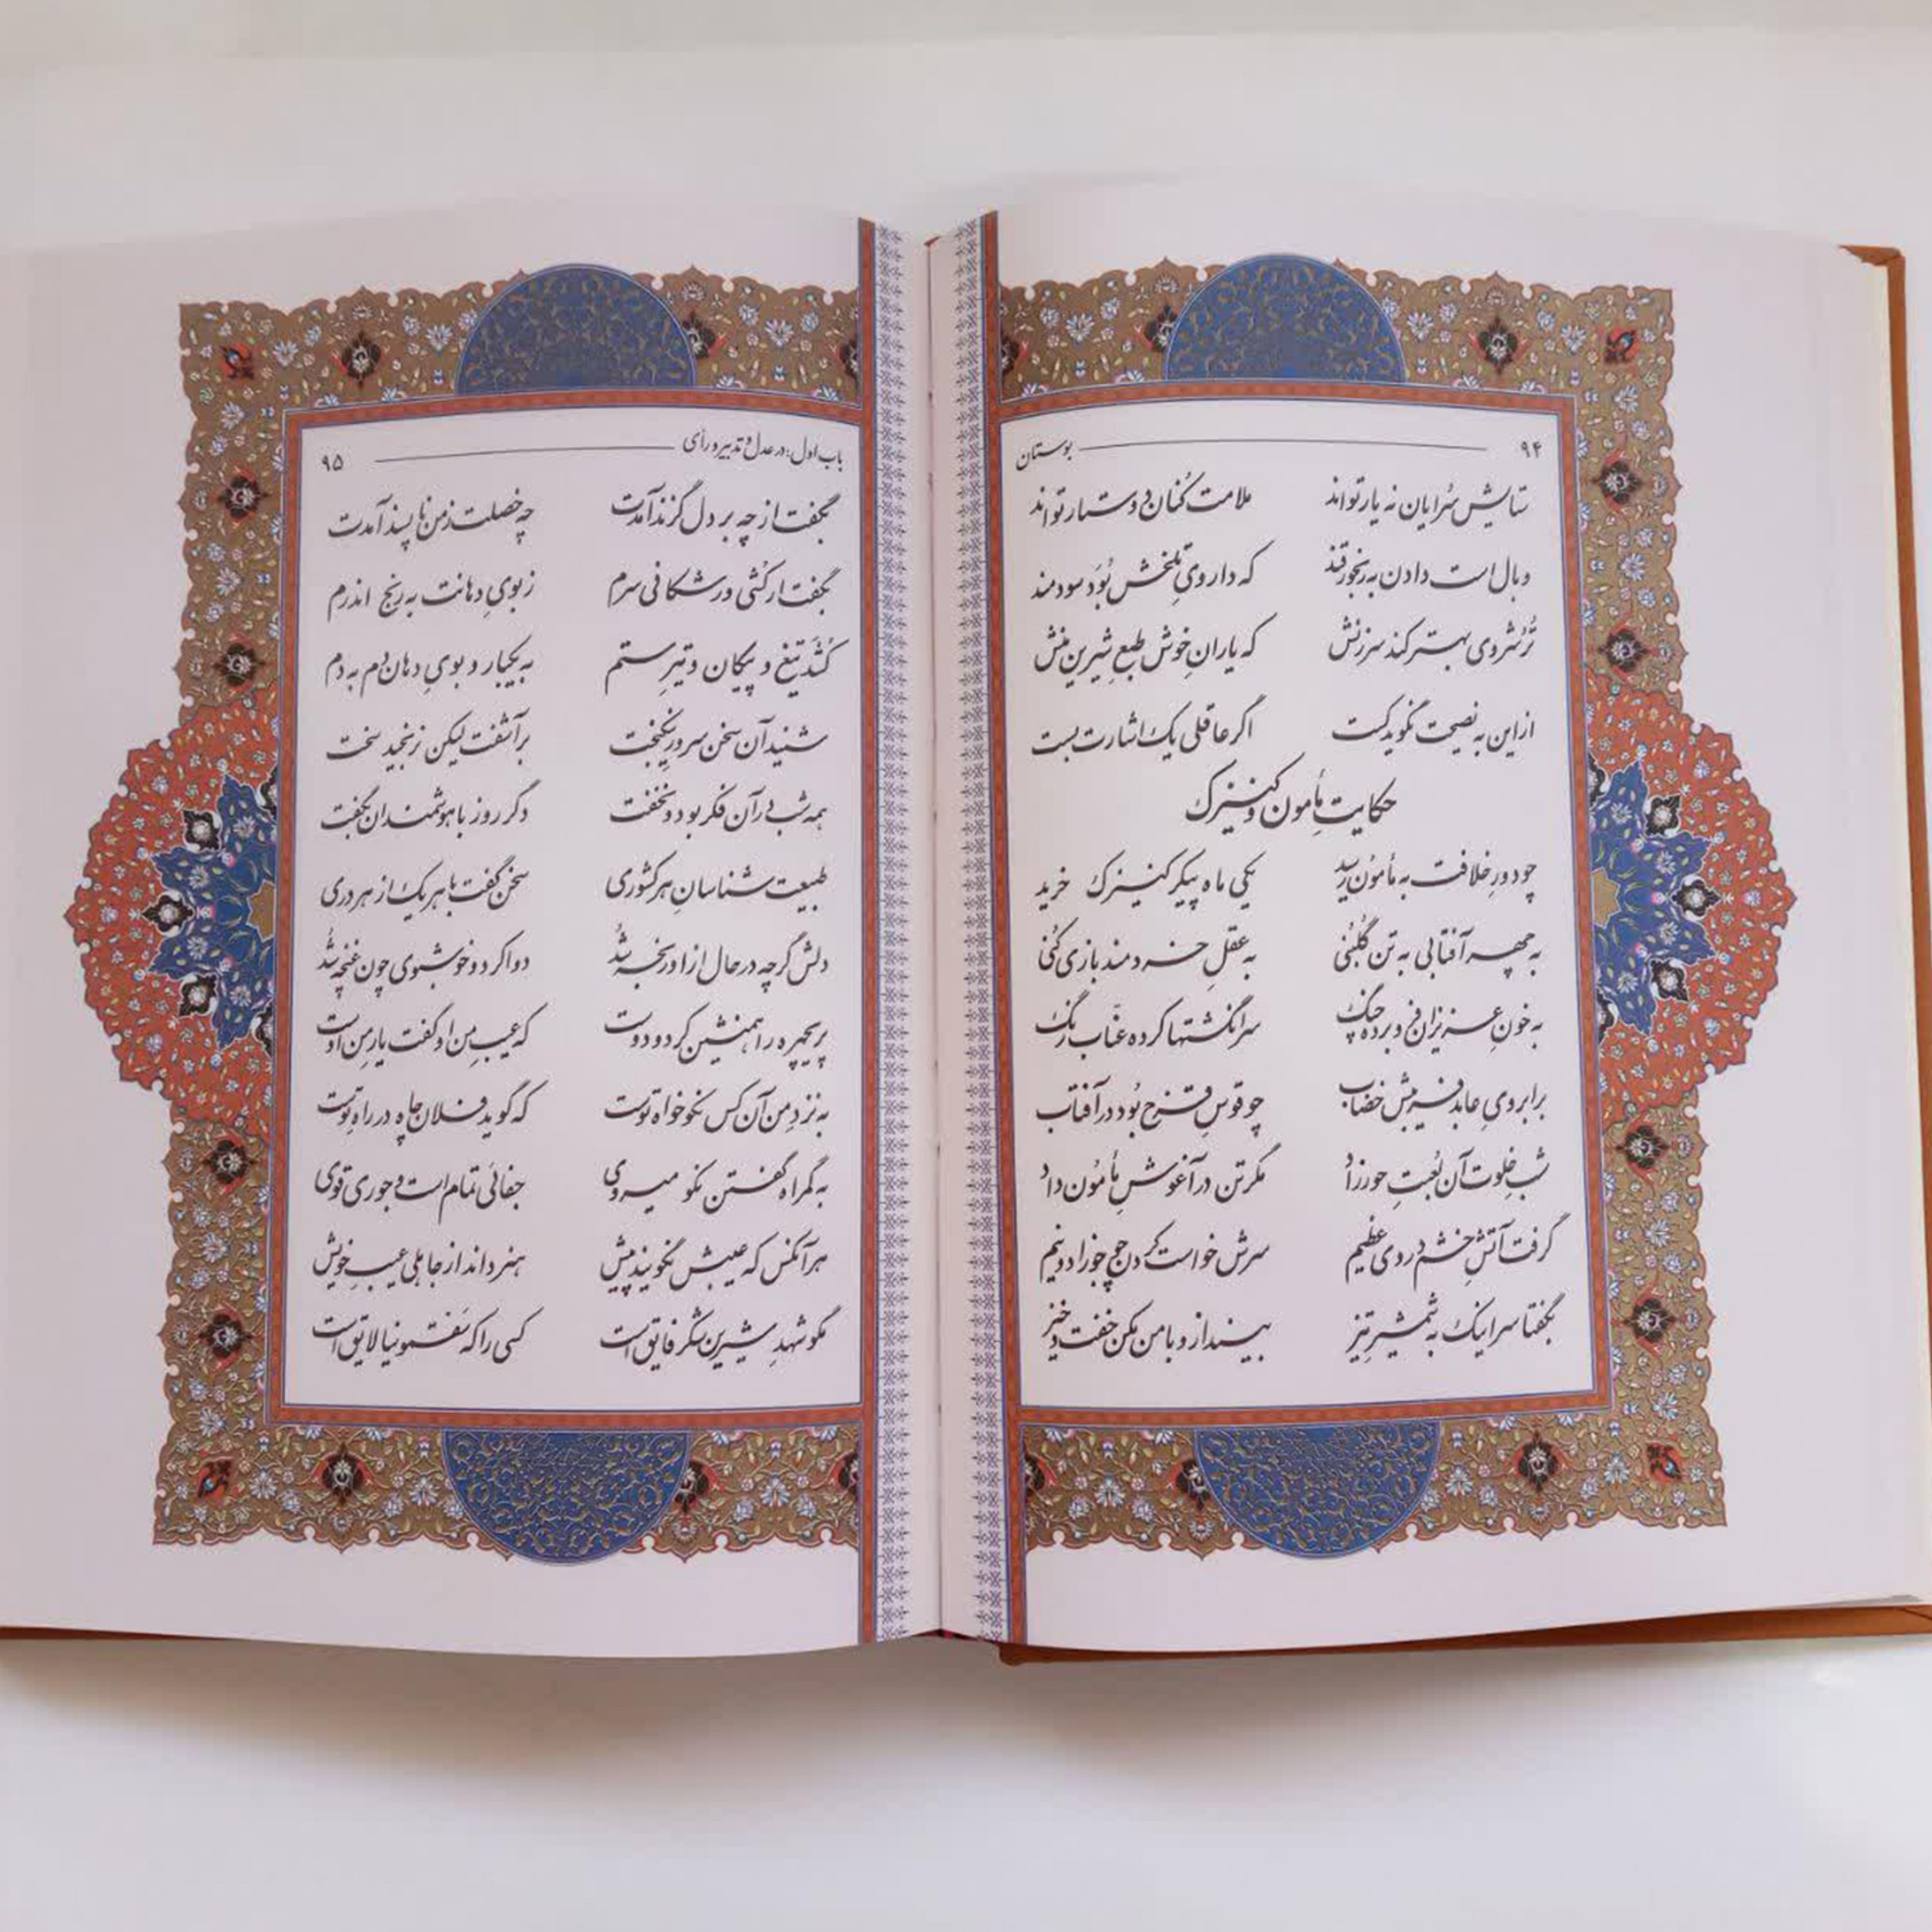 ۹۴ بوستان
ستایش سُرایان نه یار تواند ملامت کُنان دوستدار تواند
وبال است دادن به رنجور قند که داروی تلخش بُوَد سودمند
تُرُشروی بهتر کند سرزنش که یارانِ خوش طبعِ شیرین منش
از این به نصیحت نگوید کست اگر عاقلی یک اشارت بست
حکایتِ مأمون و کنیزک
چو دورِ خلافت به مأمون رسید یکی ماه پیکر کنیزک خرید
به چهر آفتابی به تن گلبُنی به عقلِ خردمند بازی کُنی
به خونِ عزیزان فرو برده چنگ سر انگشتها کرده عنّاب رنگ
بر ابروی عابد فریبش خضاب چو قوسِ قزح بُود در آفتاب
شبِ خلوت آن لُعبتِ حورزاد مگر تن در آغوشِ مأمون داد
گرفت آتشِ خشم در وی عظیم سرش خواست کردن چو جوزا دو نیم
بگفتا سر اینک به شمشیرِ تیز بینداز و با من مکن خفت و خیز
باب اول: در عدل و تدبیر و رأی ۹۵
بگفت از چه بر دل گزند آمدت چه خصلت ز من ناپسند آمدت
بگفت ار کُشی ور شکافی سرم ز بوی دهانت به رنج اندرم
کُشَد تیغ و پیکان و تیرِ ستم به یکبار و بوی دهان دم به دم
شنید آن سخن سرور نیکبخت برآشفت لیکن نرنجید سخت
همه شب در آن فکر بود و نخفت دگر روز با هوشمندان بگفت
طبیعت شناسانِ هر کشوری سخن گفت با هر یک از هر دری
دلش گرچه در حال از او رنجه شُد دوا کرد و خوشبوی چون غنچه شُد
پریچهره را همنشین کرد و دوست که عیبِ من او گفت یارِ من اوست
به نزدِ من آن کس نکو خواه توست که گوید فلان چاه در راه توست
به گمراه گفتن نکو میروی جفائی تمام است و جوری قوی
هر آنکس که عیبش نگویند پیش هنر داند از جاهلی عیبِ خویش
مگو شهدِ شیرین شکر فایق است کسی را که سَقَمونیا لایق است